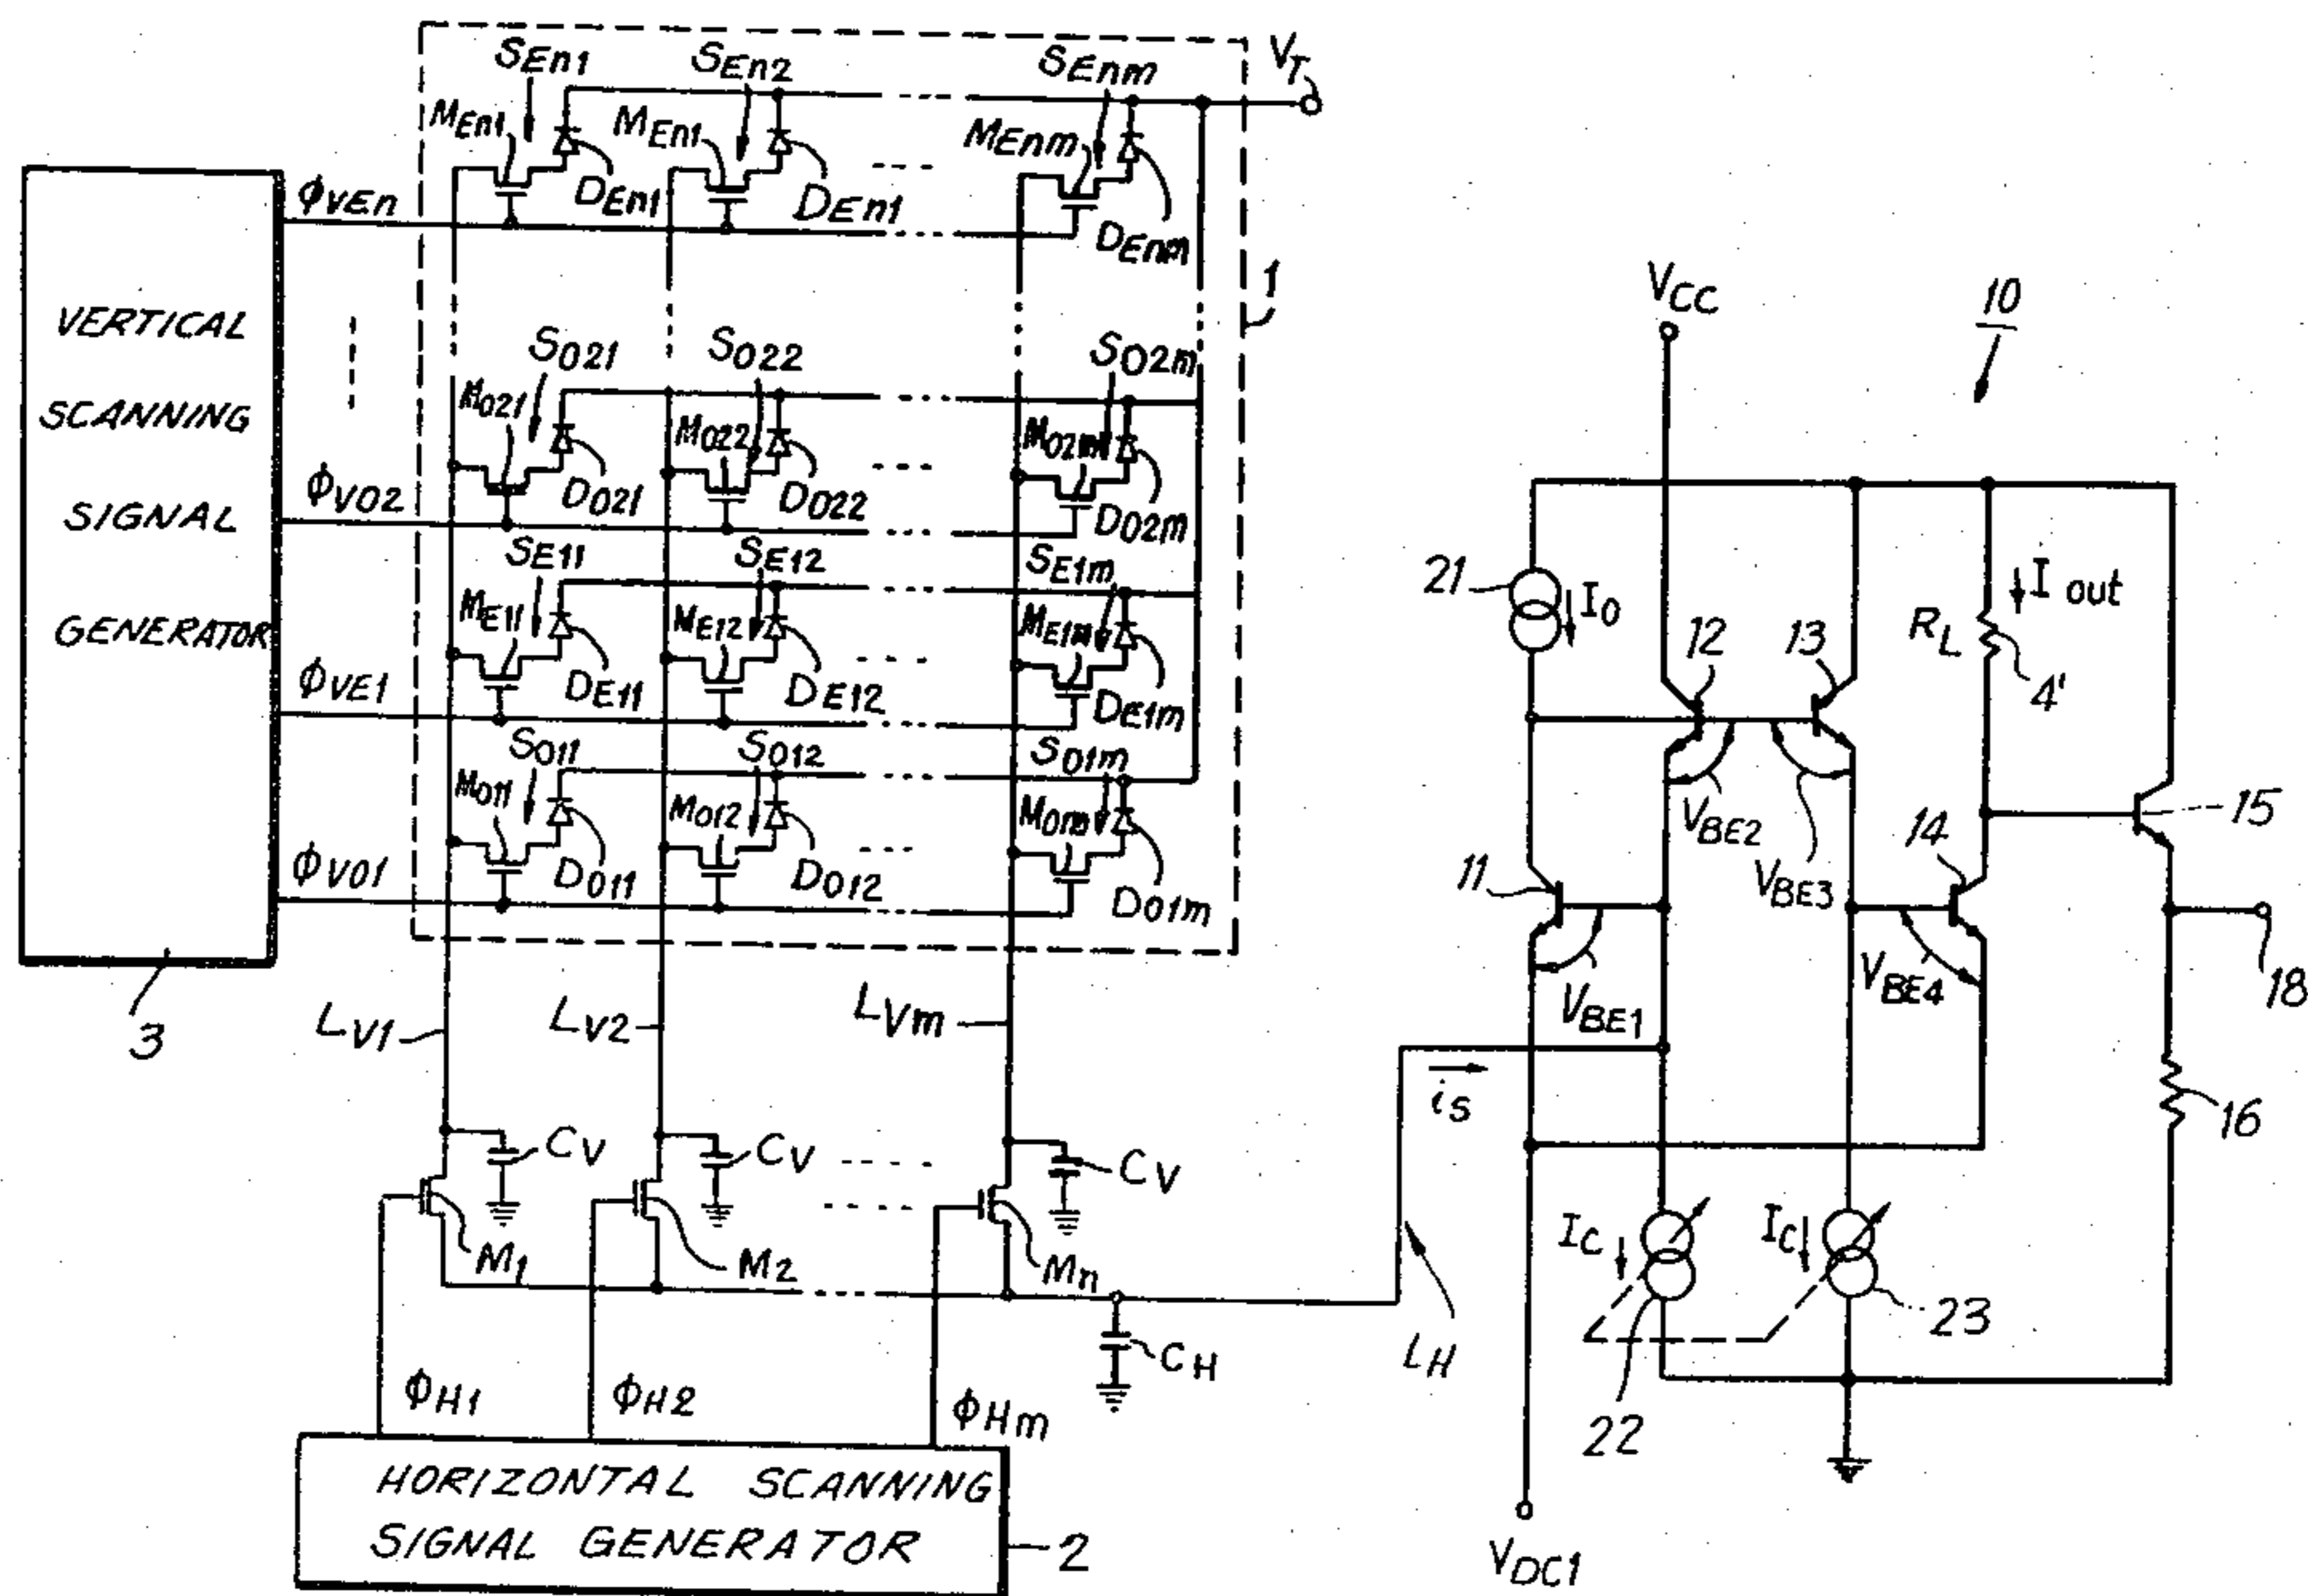 SEn1
SEn2
SEnm
VT
MEn1
MEn1
MEnm
DEn1
DEn1
DEnm
φVEn
1
VERTICAL
SCANNING
SIGNAL
GENERATOR
3
SO21
SO22
SO2m
MO21
MO22
MO2m
DO21
DO22
DO2m
φVO2
SE11
SE12
SE1m
ME11
ME12
ME1m
DE11
DE12
DE1m
φVE1
SO11
SO12
SO1m
MO11
MO12
MO1m
DO11
DO12
DO1m
φVO1
LV1
LV2
LVm
CV
CV
CV
M1
M2
Mn
CH
LH
iS
φH1
φH2
φHm
HORIZONTAL SCANNING
SIGNAL GENERATOR
2
VCC
10
21
IO
12
13
RL
Iout
4'
VBE2
VBE3
14
15
11
VBE1
VBE4
18
16
IC
IC
22
23
VDC1